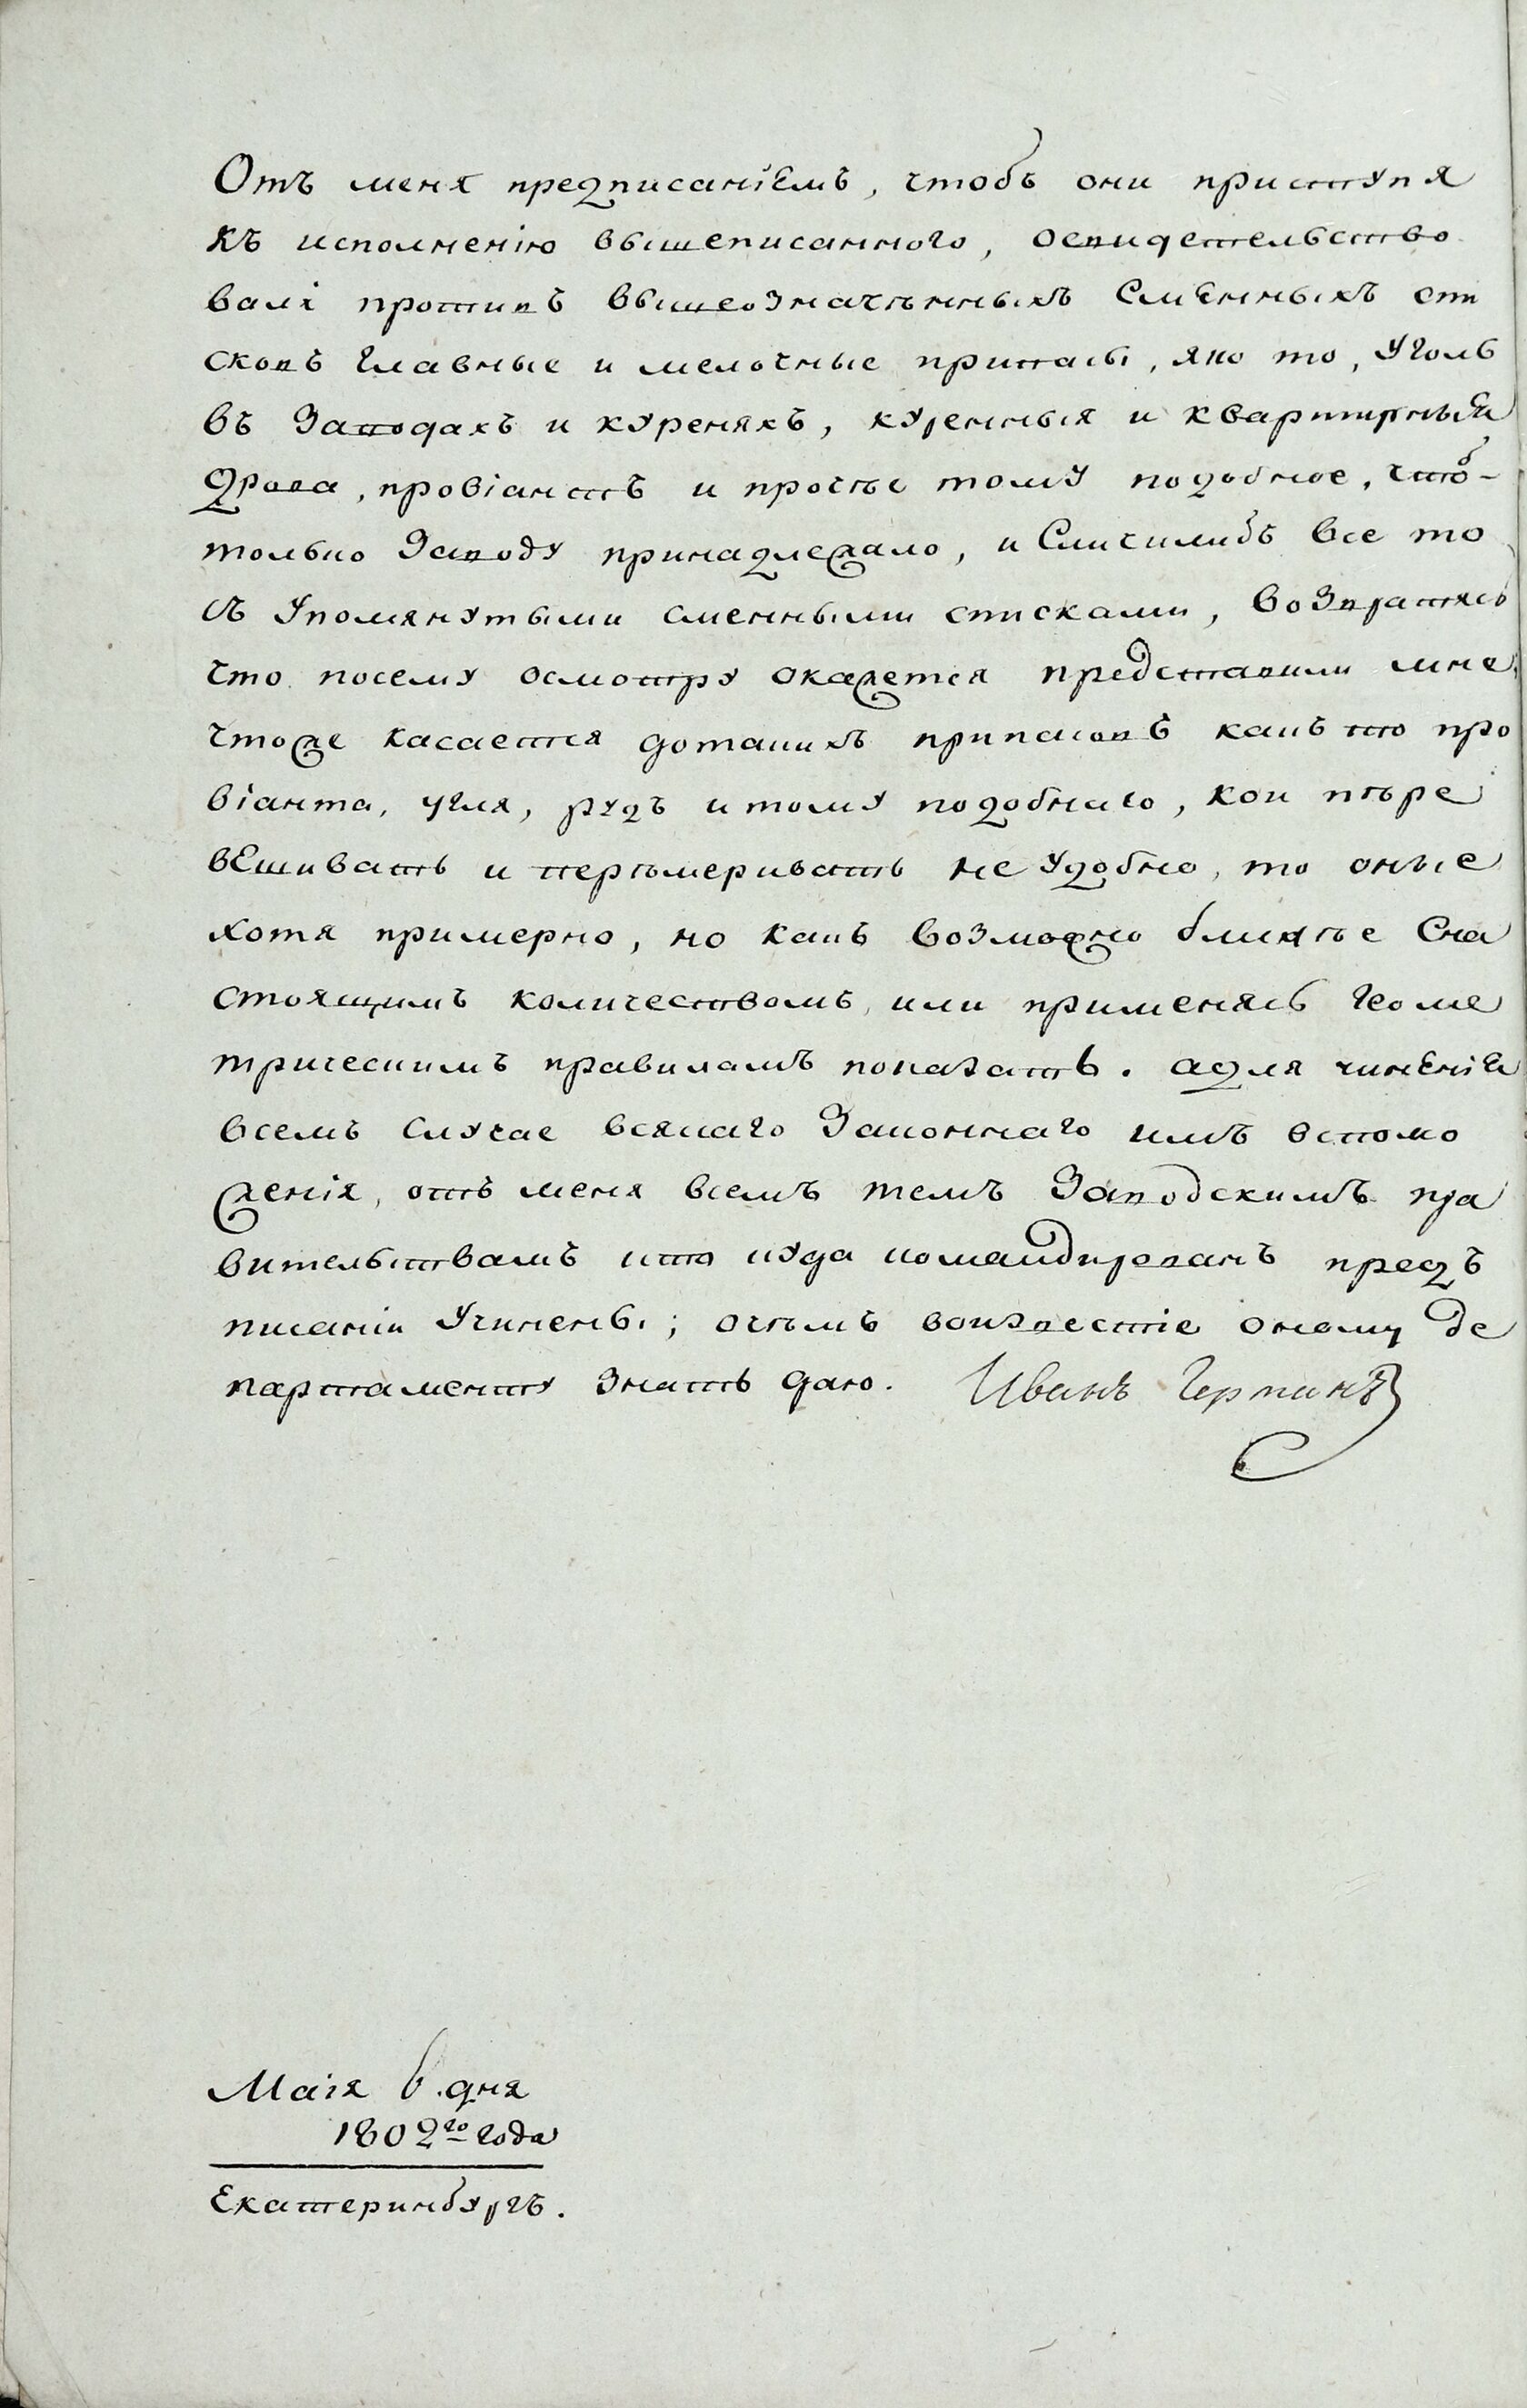 Отъ меня предписаніемъ, чтобъ они приступя
къ исполненію вышеписанного, освидетельство
вали противъ вышеозначенныхъ Сменныхъ спи
сковъ главные и мелочные припасы, яко то, уголь
въ Заводахъ и куреняхъ, куренныя и квартирныя
дрова, провіантъ и прочее тому подобное, чтобъ
только Заводу принадлежало, и Сличилибъ все то
съ Упомянутыми сменными списками, возвратясь
что посему осмотру окажется представили мне,
чтоже касается дотакихъ припасовъ какъ то про
віанта, угля, рудъ и тому подобнаго, кои пере
вешивать и перемеривать не удобно, то оные
хотя примерно, но какъ возможно ближее Сна
стоящимъ количествомъ, или применяясь Геоме
трическимъ правиламъ показать. адля чиненіе
всемъ Случае всякаго Законнаго имъ вспомо
женія, отъ меня всемъ темъ Заводскимъ пра
вительствамъ кто куда командированъ предъ
писаніи Учинены; очемъ воизвестіе оному де
партаменту знать даю. Иванъ Германъ
Маія 6. дня
1802го года
Екатеринбургъ.